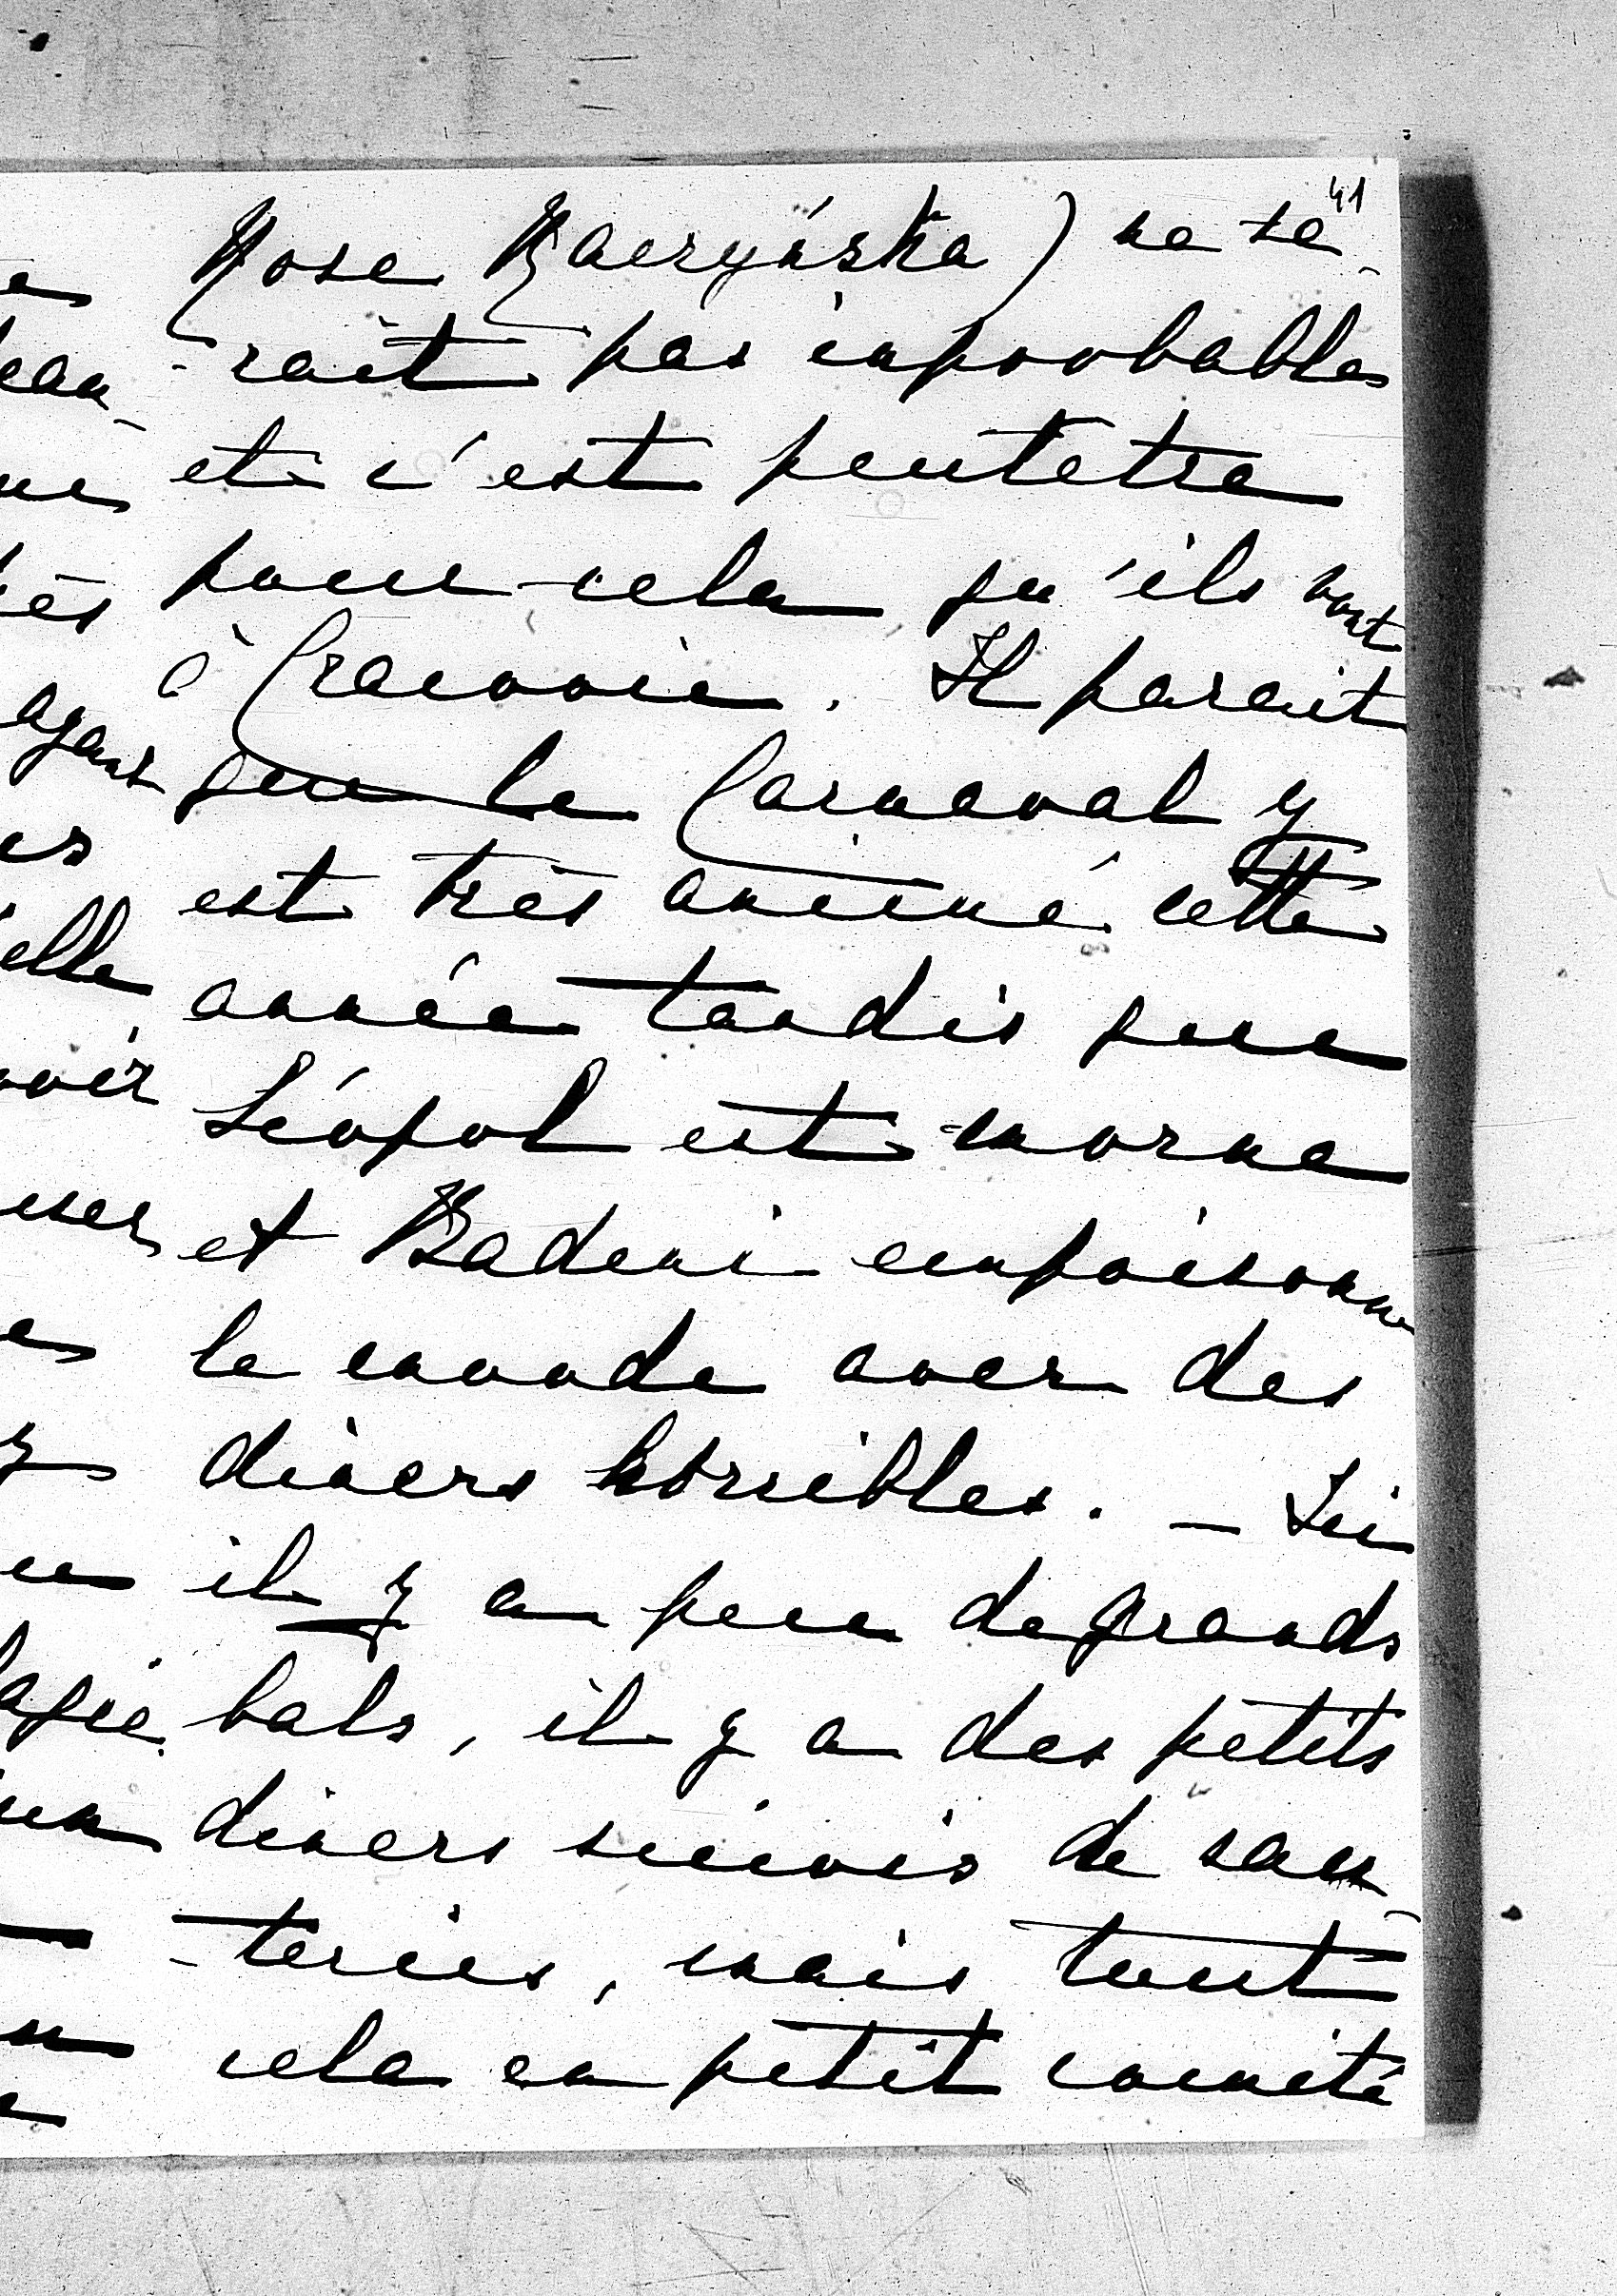 41
Rose Raczyńska) ne se-
-rait pas improbable
et c'est peutetre
pour cela qu'ils vont
à Cracovie. Il parait
que le Carnaval y
est très animé cette
année tandis que
Léopol est morne
et Badeni empoisonne
le monde avec des
diners horribles. — Ici
il y a peu de grands
bals, il y a des petits
diners suivis de sau-
-teries, mais tout
cela en petit comité